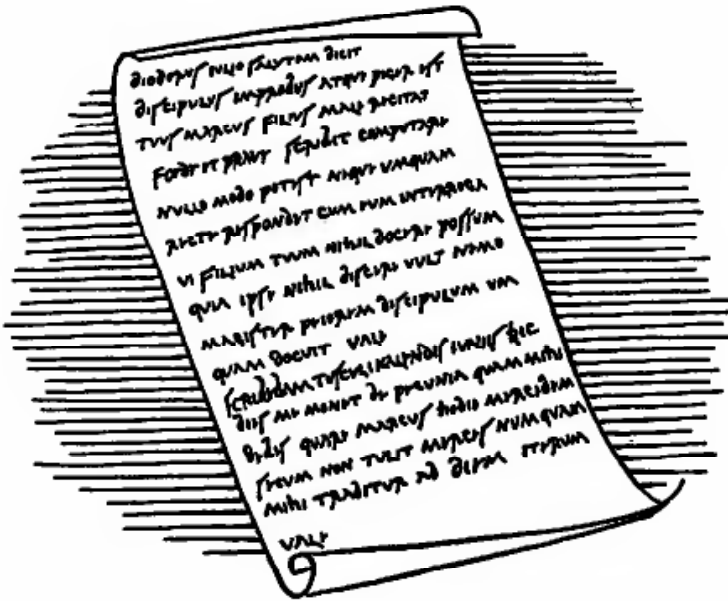 diodorus salutem dicit
discipulus improbus atque piger est
tuus marcus filius male recitat
foede et prave scribit computare
nullo modo potest neque umquam
recte respondet cum eum interroga
vi filium tuum nihil docere possum
quia ipse nihil discere vult nemo
magister peiorem discipulum um
quam docuit vale
scribebam tusculi kalendis iuniis hic
dies me monet de pecunia quam mihi
debes quare marcus hodie mercedem
secum non tulit merces numquam
mihi traditur ad diem iterum
vale